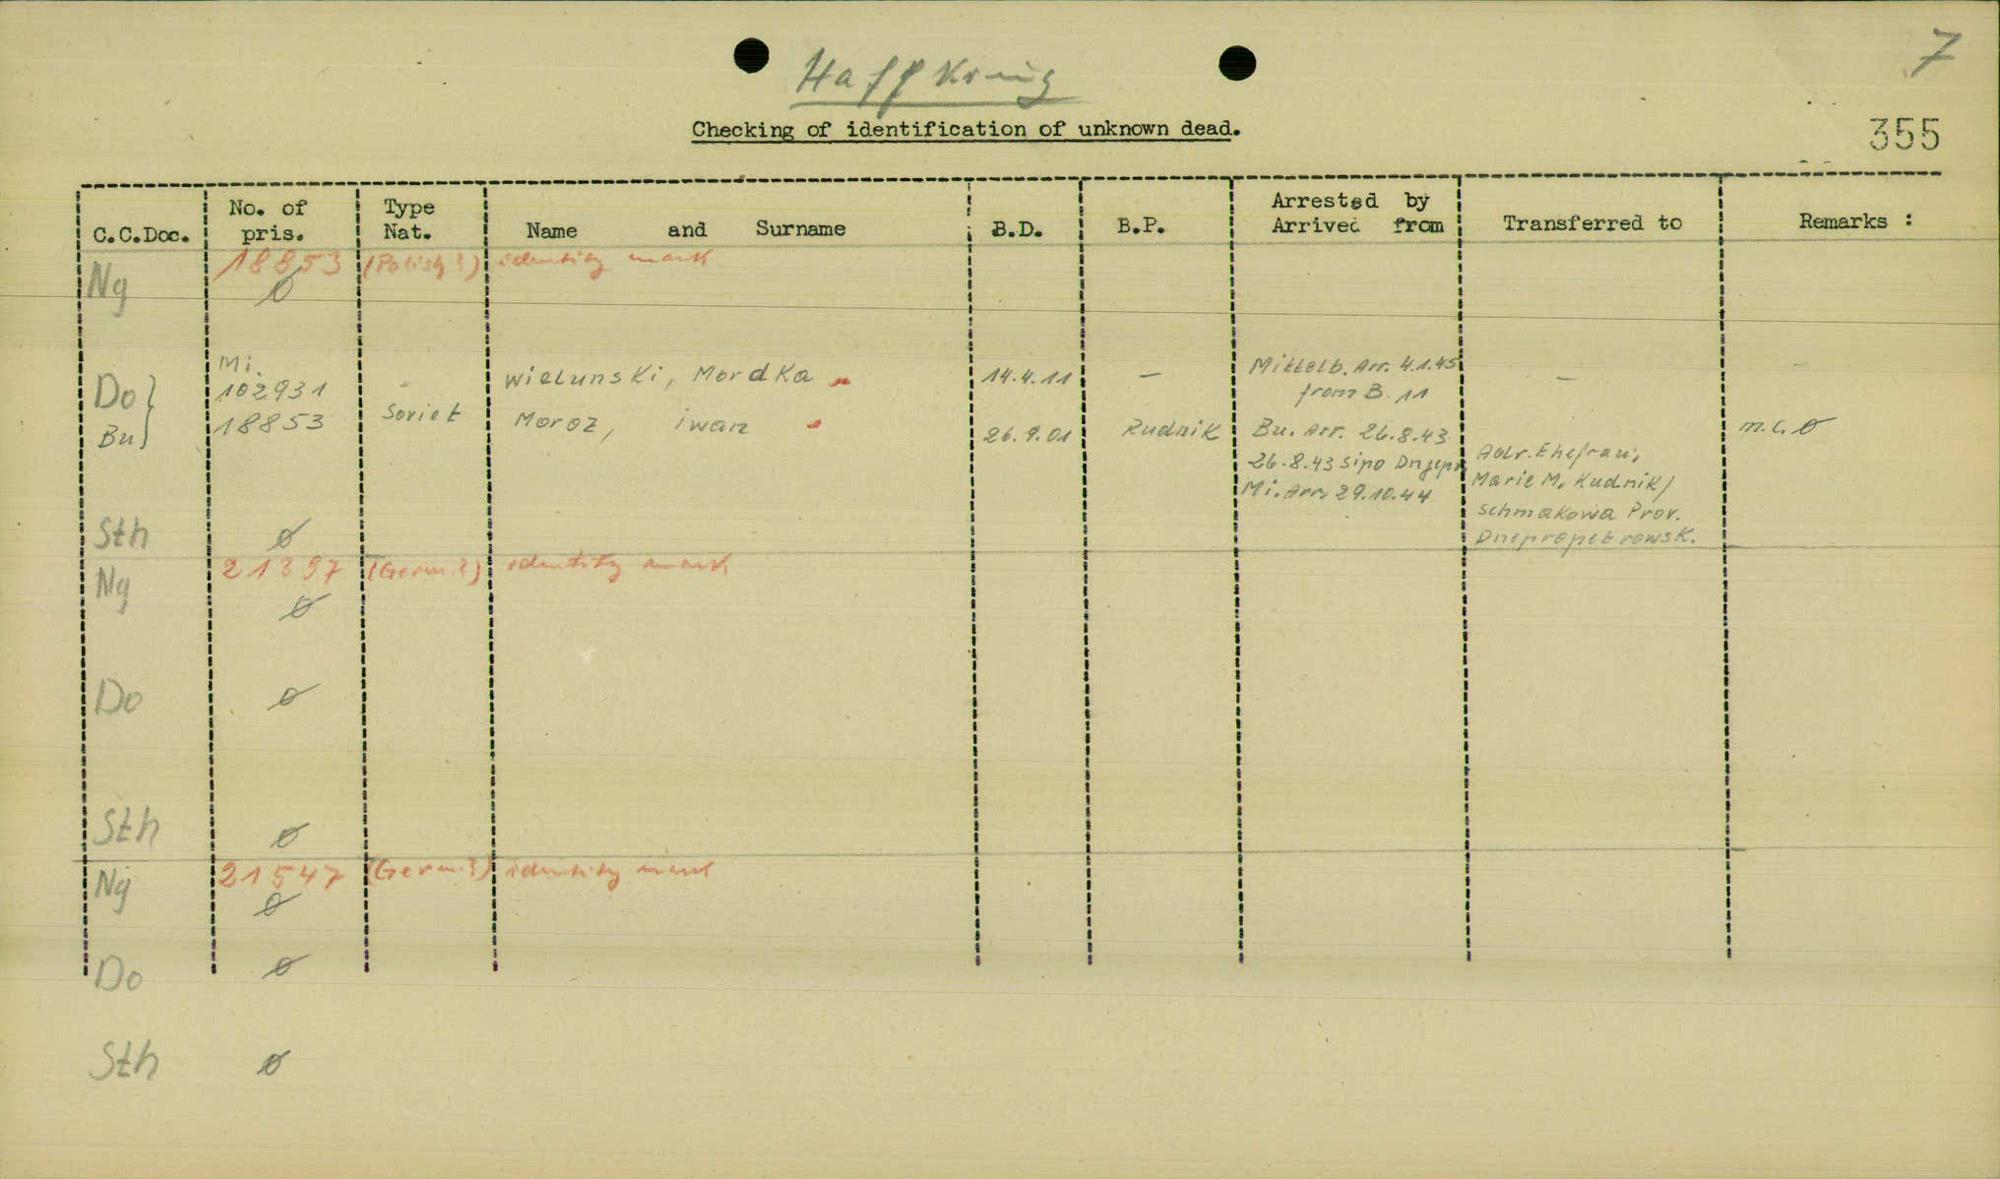 7
Haffkrug
Checking of identification of unknown dead.
355
C.C.Doc. No. of pris. Type Nat. Name and Surname B.D. B.P. Arrested by Arrived from Transferred to Remarks :
18853 (Polish?) identity mark
Ng ø
Mi.
Do 102931 - Wielunski, Mordka 14.4.11 — Mittelb. Arr. 4.1.45 — -
from B. 11
Bu 18853 Soviet Moroz, iwan 26.9.01 Rudnik Bu. Arr. 26.8.43 m.c. ø
26.8.43 Sipo Dnjepr
Mi. Arr. 29.10.44
Adr. Ehefrau;
Marie M, Kudnik/
Schmakowa Prov.
Dnepropetrowsk.
Sth ø
21397 (Germ.?) identity mark
Ng ø
Do ø
Sth ø
21547 (Germ.?) identity mark
Ng ø
Do ø
Sth ø